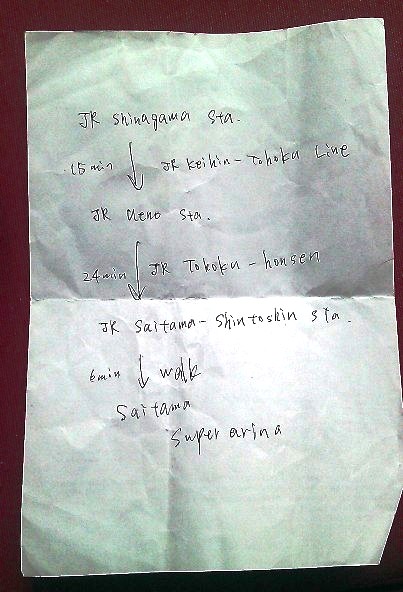 JR Shinagama Sta.
15min JR Keihin-Tohoku Line
JR Ueno Sta.
24min JR Tohoku-honsen
JR Saitama-Shintoshin Sta.
6min walk
Saitama
Super arina